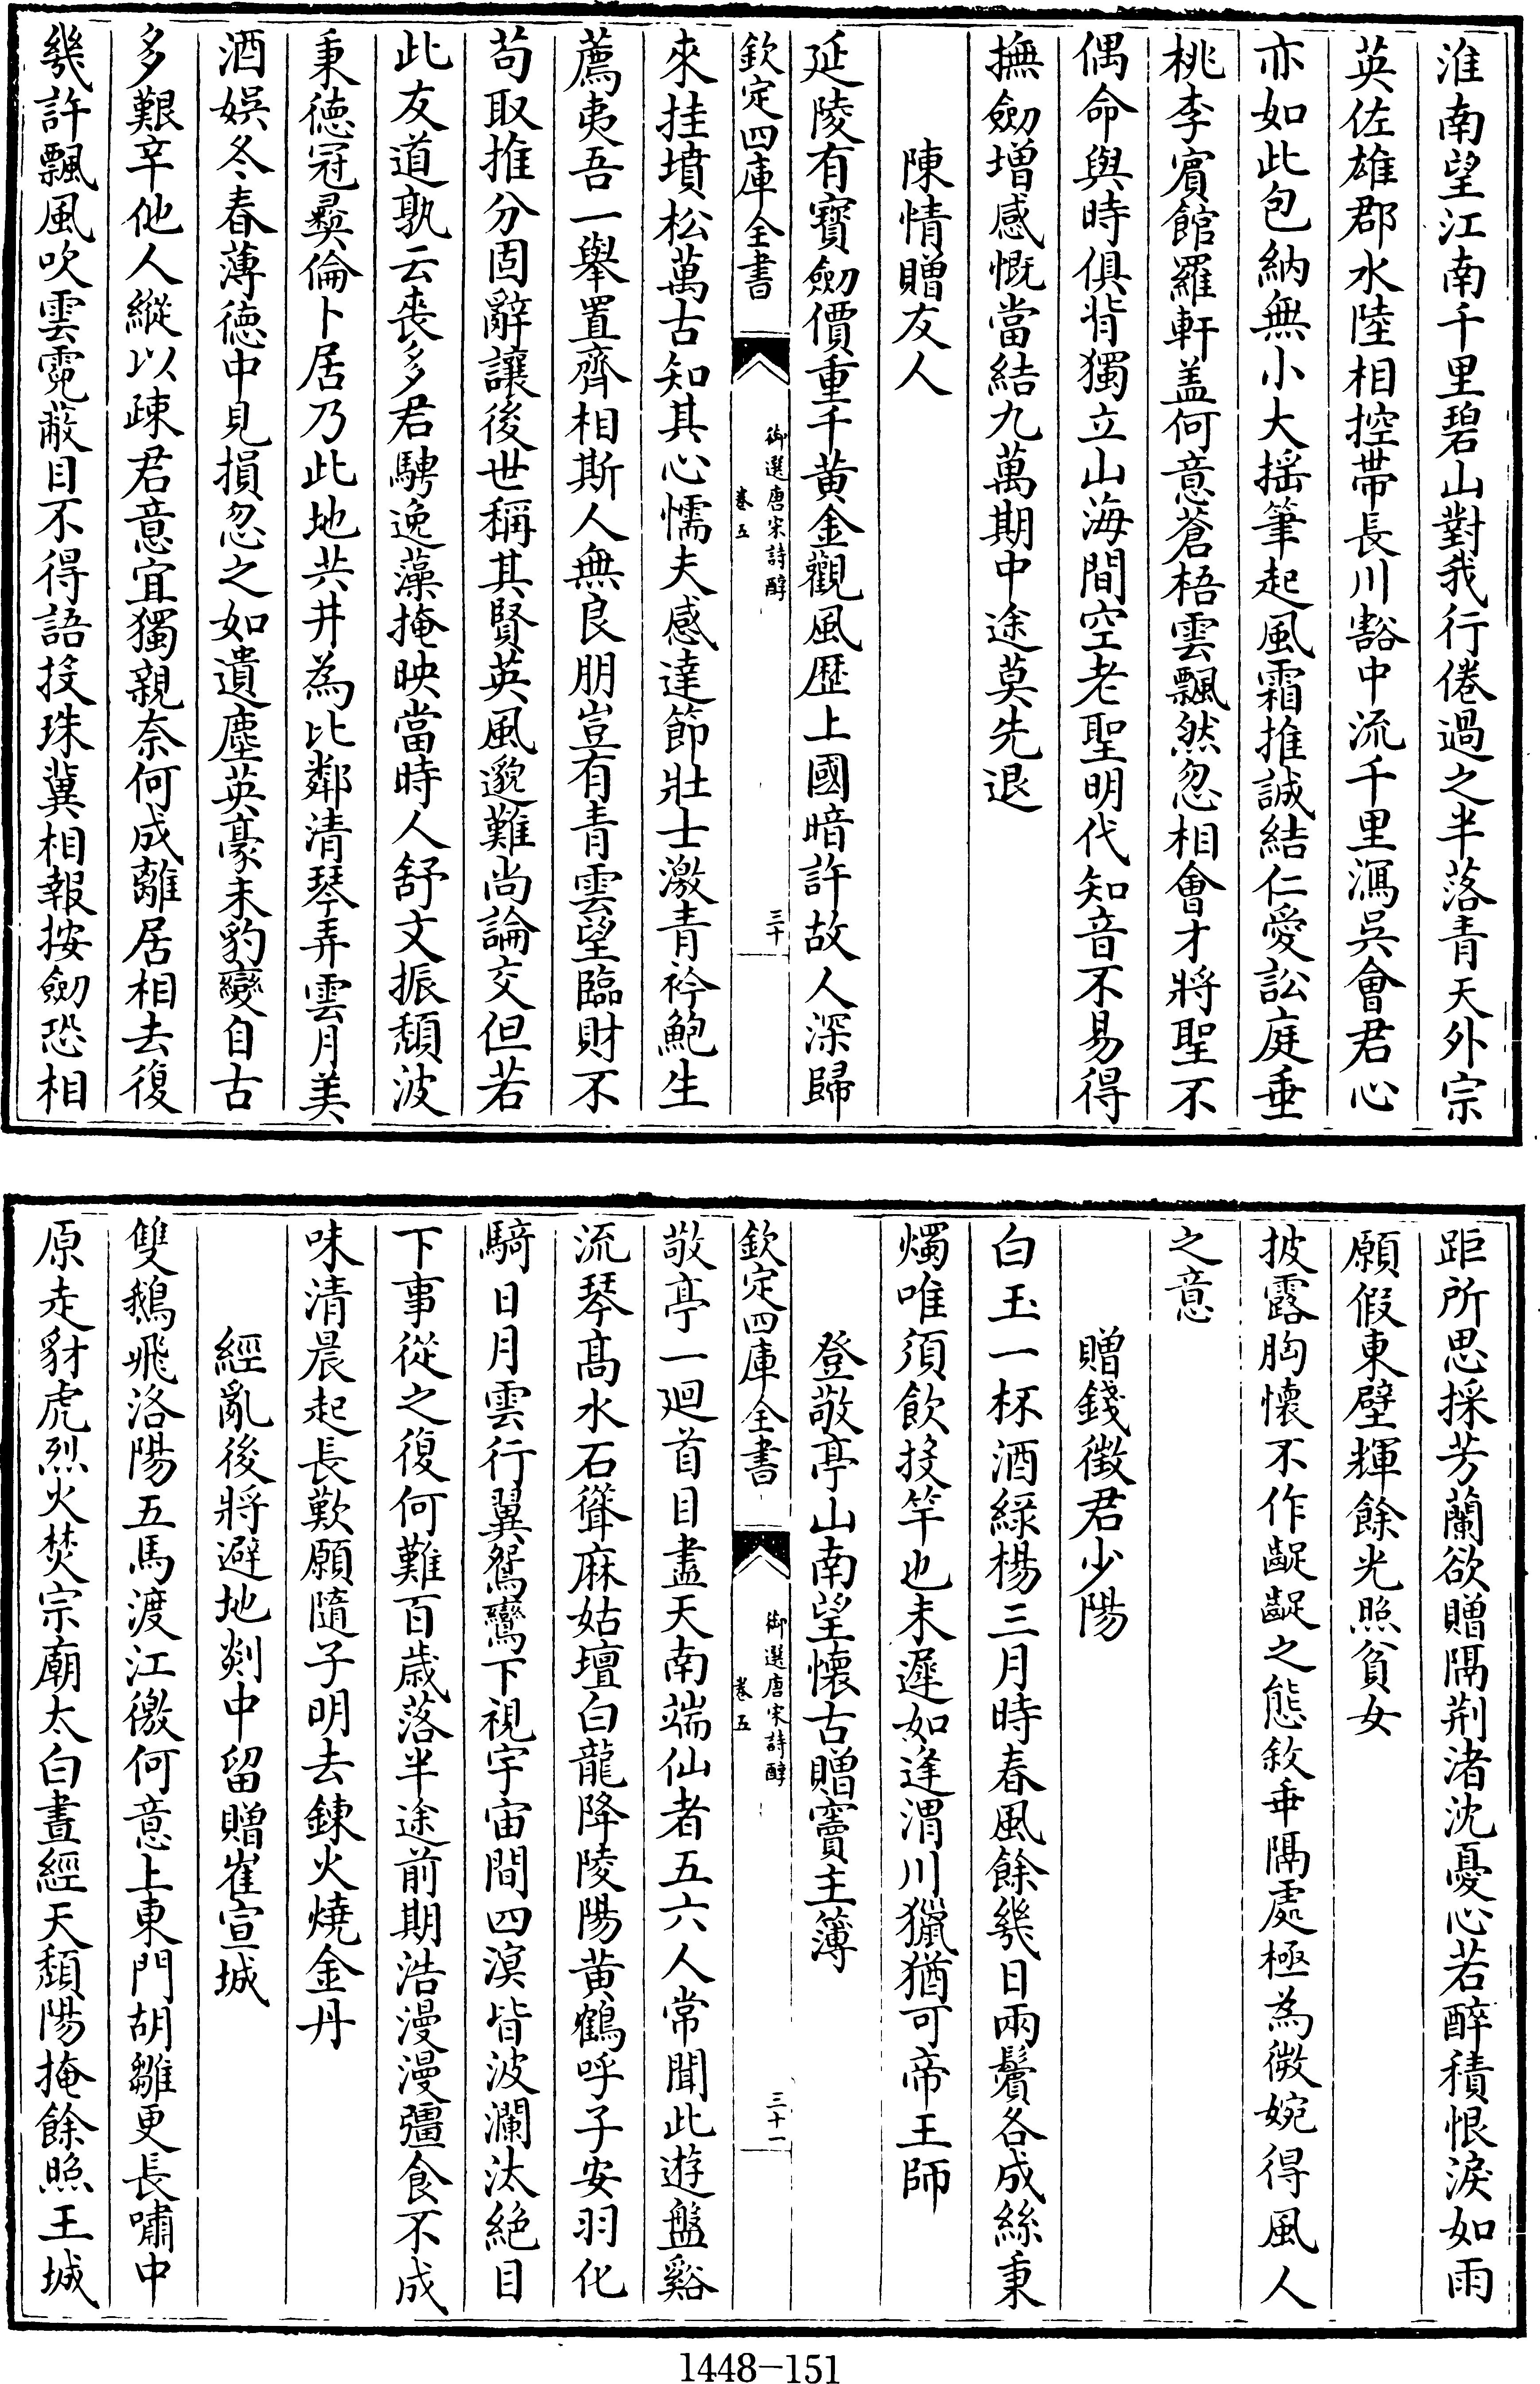 淮南望江南千里碧山對我行倦過之半落青天外宗
英佐雄郡水陸相控帶長川豁中流千里瀉吳會君心
亦如此包納無小大搖筆起風霜推誠結仁愛訟庭垂
桃李賓館羅軒盖何意蒼梧雲飄然忽相會才將聖不
偶命與時俱背獨立山海間空老聖明代知音不易得
撫劒增感慨當結九萬期中途莫先退
陳情贈友人
延陵有寶劒價重千黄金觀風歴上國暗許故人深歸
欽定四庫全書
御選唐宋詩醇
卷五
三十
來挂墳松萬古知其心懦夫感達節壯士激青衿鮑生
薦夷吾一舉置齊相斯人無良朋豈有青雲望臨財不
苟取推分固辭讓後世稱其賢英風邈難尚論交但若
此友道孰云喪多君騁逸藻掩映當時人舒文振頽波
秉德冠彛倫卜居乃此地共井為比鄰清琴弄雲月美
酒娯冬春薄德中見損忽之如遺塵英豪未豹變自古
多艱辛他人縱以疎君意宜獨親奈何成離居相去復
幾許飄風吹雲霓蔽目不得語投珠冀相報按劒恐相
距所思採芳蘭欲贈隔荆渚沈憂心若醉積恨淚如雨
願假東壁輝餘光照貧女
披露胸懷不作齪齪之態敘乖隔處極為微婉得風人
之意
贈錢徵君少陽
白玉一杯酒緑楊三月時春風餘幾日兩鬢各成絲秉
燭唯須飲投竿也未遲如逢渭川獵猶可帝王師
登敬亭山南望懷古贈竇主簿
欽定四庫全書
御選唐宋詩醇
卷五
三十一
敬亭一迴首目盡天南端仙者五六人常聞此遊盤谿
流琴髙水石聳麻姑壇白龍降陵陽黄鶴呼子安羽化
騎日月雲行翼鴛鸞下視宇宙間四溟皆波瀾汰絶目
下事從之復何難百歳落半途前期浩漫漫彊食不成
味清晨起長歎願隨子明去錬火燒金丹
經亂後將避地剡中留贈崔宣城
雙鵝飛洛陽五馬渡江徼何意上東門胡雛更長嘯中
原走豺虎烈火焚宗廟太白晝經天頽陽掩餘照王城
1448-151